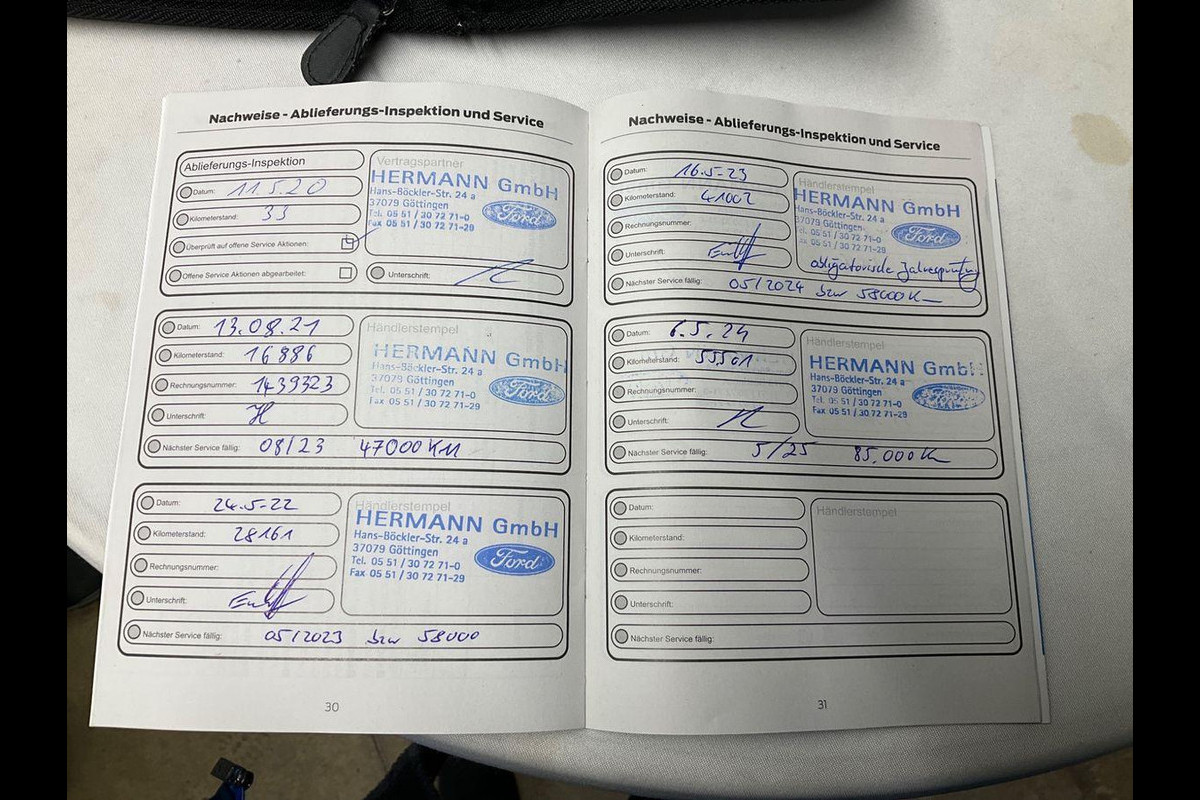 Nachweise - Ablieferungs-Inspektion und Service
Ablieferungs-Inspektion
Datum: 11.5.20
Kilometerstand: 33
Überprüft auf offene Service Aktionen:
Offene Service Aktionen abgearbeitet:
Unterschrift:
Vertragspartner
HERMANN GmbH
Hans-Böckler-Str. 24 a
37079 Göttingen
Tel. 05 51 / 30 72 71-0
Fax 05 51 / 30 72 71-29
Ford
Datum: 13.08.21
Kilometerstand: 16886
Rechnungsnummer: 1439323
Unterschrift:
Nächster Service fällig: 08/23 47000 KM
Händlerstempel
HERMANN GmbH
Hans-Böckler-Str. 24 a
37079 Göttingen
Tel. 05 51 / 30 72 71-0
Fax 05 51 / 30 72 71-29
Ford
Datum: 24.5-22
Kilometerstand: 28161
Rechnungsnummer:
Unterschrift:
Nächster Service fällig: 05/2023 bzw 58000
Händlerstempel
HERMANN GmbH
Hans-Böckler-Str. 24 a
37079 Göttingen
Tel. 05 51 / 30 72 71-0
Fax 05 51 / 30 72 71-29
Ford
30
Nachweise - Ablieferungs-Inspektion und Service
Datum: 16.5-23
Kilometerstand: 41002
Rechnungsnummer:
Unterschrift:
Nächster Service fällig: 05/2024 bzw 58000 Km
Händlerstempel
HERMANN GmbH
Hans-Böckler-Str. 24 a
37079 Göttingen
Tel. 05 51 / 30 72 71-0
Fax 05 51 / 30 72 71-29
Ford
obligatorische Jahresprüfung
Datum: 6.5.24
Kilometerstand: 55501
Rechnungsnummer:
Unterschrift:
Nächster Service fällig: 5/25 85.000 Km
Händlerstempel
HERMANN GmbH
Hans-Böckler-Str. 24 a
37079 Göttingen
Tel. 05 51 / 30 72 71-0
Fax 05 51 / 30 72 71-29
Ford
Datum:
Kilometerstand:
Rechnungsnummer:
Unterschrift:
Nächster Service fällig:
Händlerstempel
31